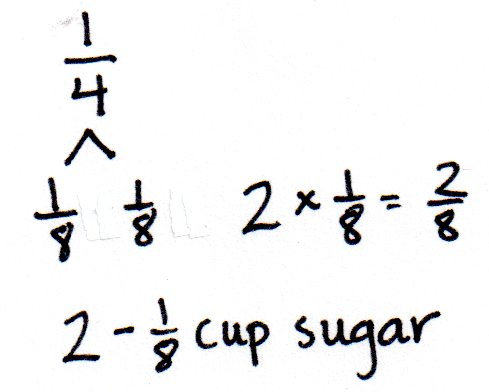 1/4
1/8 1/8 2 × 1/8 = 2/8
2 - 1/8 cup sugar